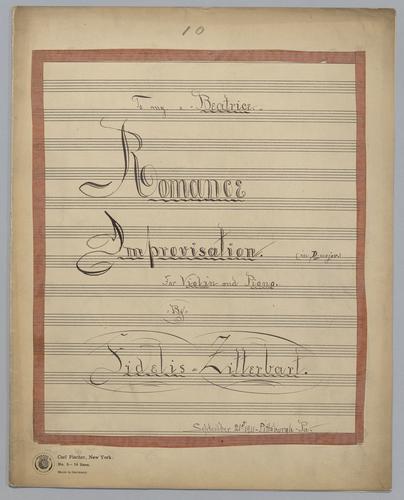 10
To my - Beatrice -
Romance
Improvisation. (in D major)
For Violin and Piano.
- By -
Fidelis - Zitterbart.
September 21st 1911 - Pittsburgh - Pa -
Carl Fischer, New York.
No. 5 - 14 lines.